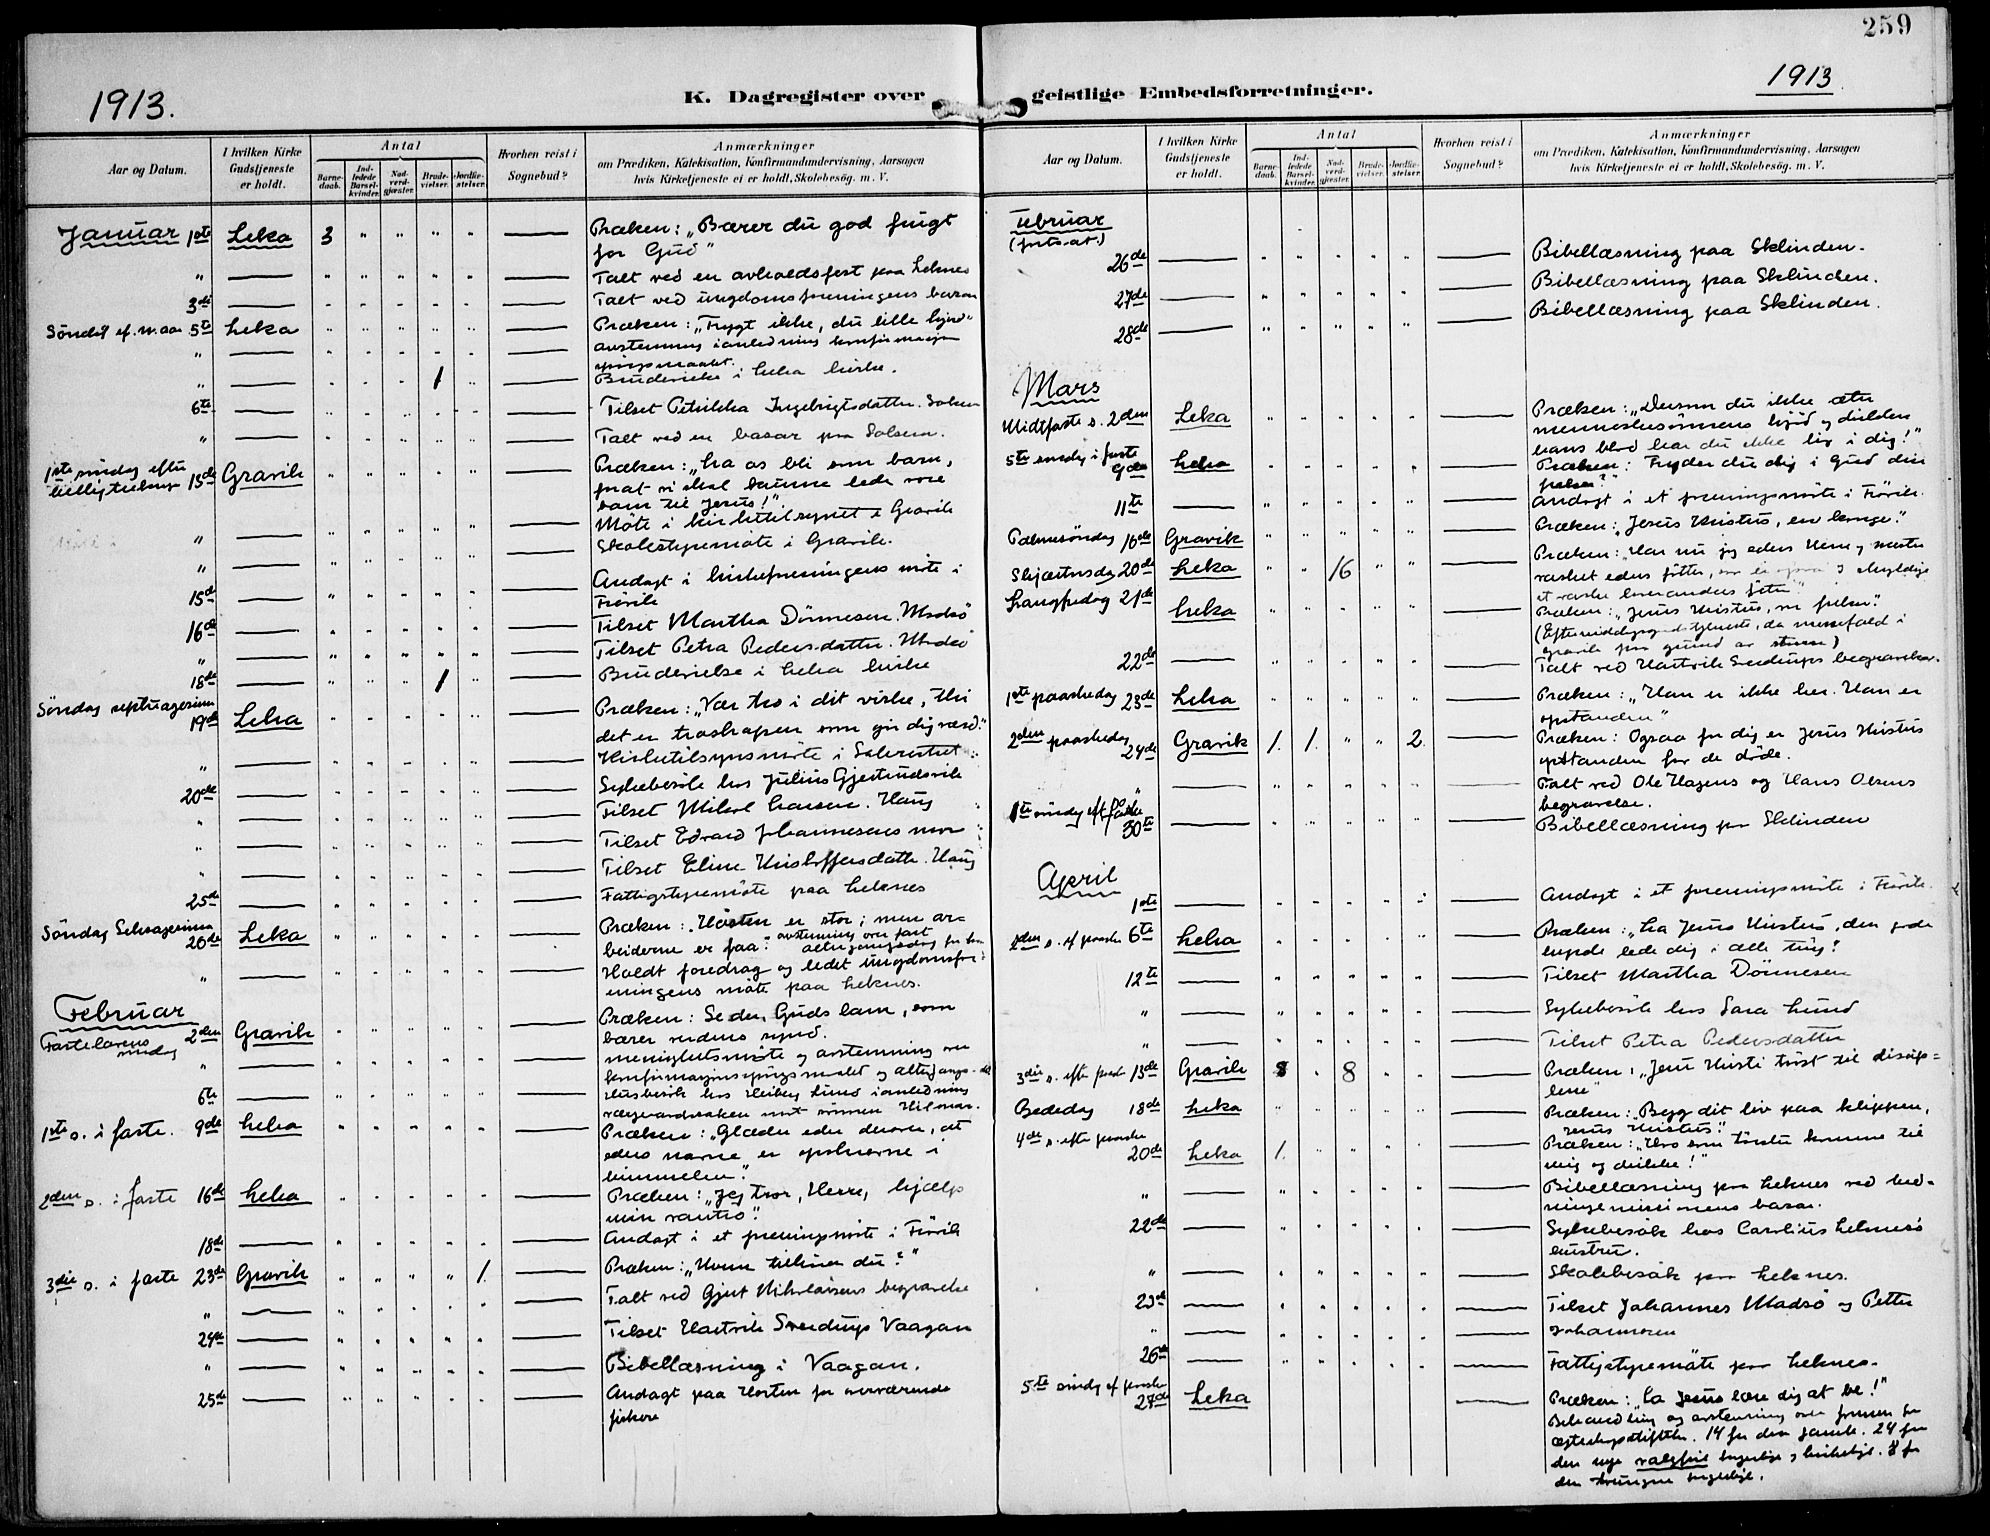 259
1913.
1913
K. Dagregister over geistlige Embedsforretninger.
Aar og Datum.
I hvilken Kirke Gudstjeneste er holdt.
Antal
Barnedaab.
Indledede Barselkvinder.
Nadverdgjæster.
Brudevielser.
Jordfæstelser.
Hvorhen reist i Sognebud?
Anmærkninger
om Prædiken, Katekisation, Konfirmandundervisning, Aarsagen
hvis Kirketjeneste ei er holdt, Skolebesøg. m. V.
Januar 1ste Leka 3 Præken: „Bærer du god frugt
for Gud"
" Talt ved en avholdsfest paa Leknes
3die Talt ved ungdomsforeningens basar
Søndag ef. n. aar 5te Leka Præken: „Frygt ikke, du lille hjord"
" avstemning i anledning konfirmasjons
spørgsmaalet.
" 1 Brudevielse i Leka kirke.
6te Tilset Petrikka Ingebrigtsdatter. Solsem
" Talt ved en basar paa Solsem.
1ste søndag efter
helligtrekonger 13de Gravik Præken: „La os bli som barn,
forat vi skal kunne lede vore
barn til Jesus!"
" Møte i kirketilsynet i Gravik
" Skolestyremøte i Gravik.
15de Andagt i kirkeforeningens møte i
Frørik
16de Tilset Martha Dønnesen. Madsø
" Tilset Petra Pedersdatter. Madsø
18de 1 Brudevielse i Leka kirke
Søndag septuagesima
19de Leka Præken: „Vær tro i dit virke, thi
det er troskapen som gir dig værd."
" Kirketilsynsmøte i Sakristiet
20de Sykebesøk hos Julius Gjertrudsvik
" Tilset Mikal Larsen. Haug
" Tilset Edvard Johannesens mor
" Tilset Eline Kristoffersdatter. Haug
25de Fattigstyremøte paa Leknes
Søndag Seksagesima
26de Leka Præken: „Høsten er stor; men ar-
beiderne er faa". avstemning over fast
altergangsdag for
" Holdt foredrag og ledet ungdomsfor-
eningens møte paa Leknes.
Februar
Fastelavens
søndag 2den Gravik Præken: Se der, Guds lam, som
bærer verdens synd.
" menighetsmøte og avstemning over
konfirmasjonsspørgsmalet og altergangs-
6te Husbesøk hos Heiberg Lund i anledning
vergeraadssaken mot sønnen Hilmar.
1ste s. i faste. 9de Leka Præken: „Glæder eder derover, at
eders navne er opskrevne i
himmelen".
2den s. i faste 16de Leka Præken: „Jeg tror, Herre, hjælp
min vantro".
18de Andagt i et foreningsmøte i Frørik
3die s. i faste 23de Gravik 1. Præken: „Hvem tilhører du?"
" Talt ved Gjert Nikolaisens begravelse
24de Tilset Hartvik Sverdrup Vaagan
" Bibellæsning i Vaagan.
25de Andagt paa Horten for overværende
fiskere
Aar og Datum.
I hvilken Kirke Gudstjeneste er holdt.
Antal
Barnedaab.
Indledede Barselkvinder.
Nadverdgjæster.
Brudevielser.
Jordfæstelser.
Hvorhen reist i Sognebud?
Anmærkninger
om Prædiken, Katekisation, Konfirmandundervisning, Aarsagen
hvis Kirketjeneste ei er holdt, Skolebesøg. m. V.
Februar
(fortsat.)
26de Bibellæsning paa Sklinden.
27de Bibellæsning paa Sklinden.
28de Bibellæsning paa Sklinden.
Mars
Midtfaste s. 2den Leka Præken: „Dersom du ikke æter
menneskesønnens kjød og drikker
hans blod har du ikke liv i dig!"
5te søndag i faste
9de Leka Præken: Fryder du dig i Gud din
frelser?"
11te Andagt i et foreningsmøte i Frørik.
Palmesøndag 16de Gravik Præken: „Jesus Kristus, en konge."
Skjærtorsdag 20de Leka 16 Præken: „Har nu jeg eders Herre og mester
vasket eders føtter, skyldige
at vaske hverandres føtter"
Langfredag 21de Leka Præken: „Jesus Kristus, vor frelser."
(Eftermiddagsgudstjeneste, da messefald i
Gravik paa grund av storm)
22de Talt ved Hartvik Sverdrups begravelse.
1ste paaskedag 23de Leka Præken: „Han er ikke her. Han er
opstanden"
2den paaskedag
24de Gravik 1. 1. 2. Præken: Ogsaa for dig er Jesus Kristus
opstanden fra de døde.
" Talt ved Ole Hagens og Hans Olsens
begravelse.
1ste søndag eft. paaske
30te Bibellæsning paa Sklinden
April
1ste Andagt i et foreningsmøte i Frørik.
2den s. ef paaske 6te Leka Præken: „La Jesus Kristus, den gode
hyrde lede dig i alle ting!
12te Tilset Martha Dønnesen
" Sykebesøk hos Sara Lund
" Tilset Petra Pedersdatter
3die s. efter paaske 13de Gravik 8 Præken: „Jesu Kristi trøst til discip-
lene"
Bededag 18de Leka Præken: „Byg dit liv paa klippen,
Jesus Kristus."
4de s. efter paaske
20de Leka 1. Præken: „Hvo som tørster komme til
mig og drikke!"
" Bibellæsning paa Leknes ved hed-
ningemissionens basar.
22de Sykebesøk hos Carolius Leknesø
hustru.
" Skolebesøk paa Leknes.
23de Tilset Johannes Madsø og Petter
" Johannesen
26de Fattigstyremøte paa Leknes.
5te søndag ef paaske
27de Leka Præken: „La Jesus lære dig at be!"
Behandling og avstemning over formen for
egteskapsstiftelse. 14 for den gamle. 24 for
den nye valgfrie borgerlige og kirkelige. 8 for
den tvungne borgerlige.